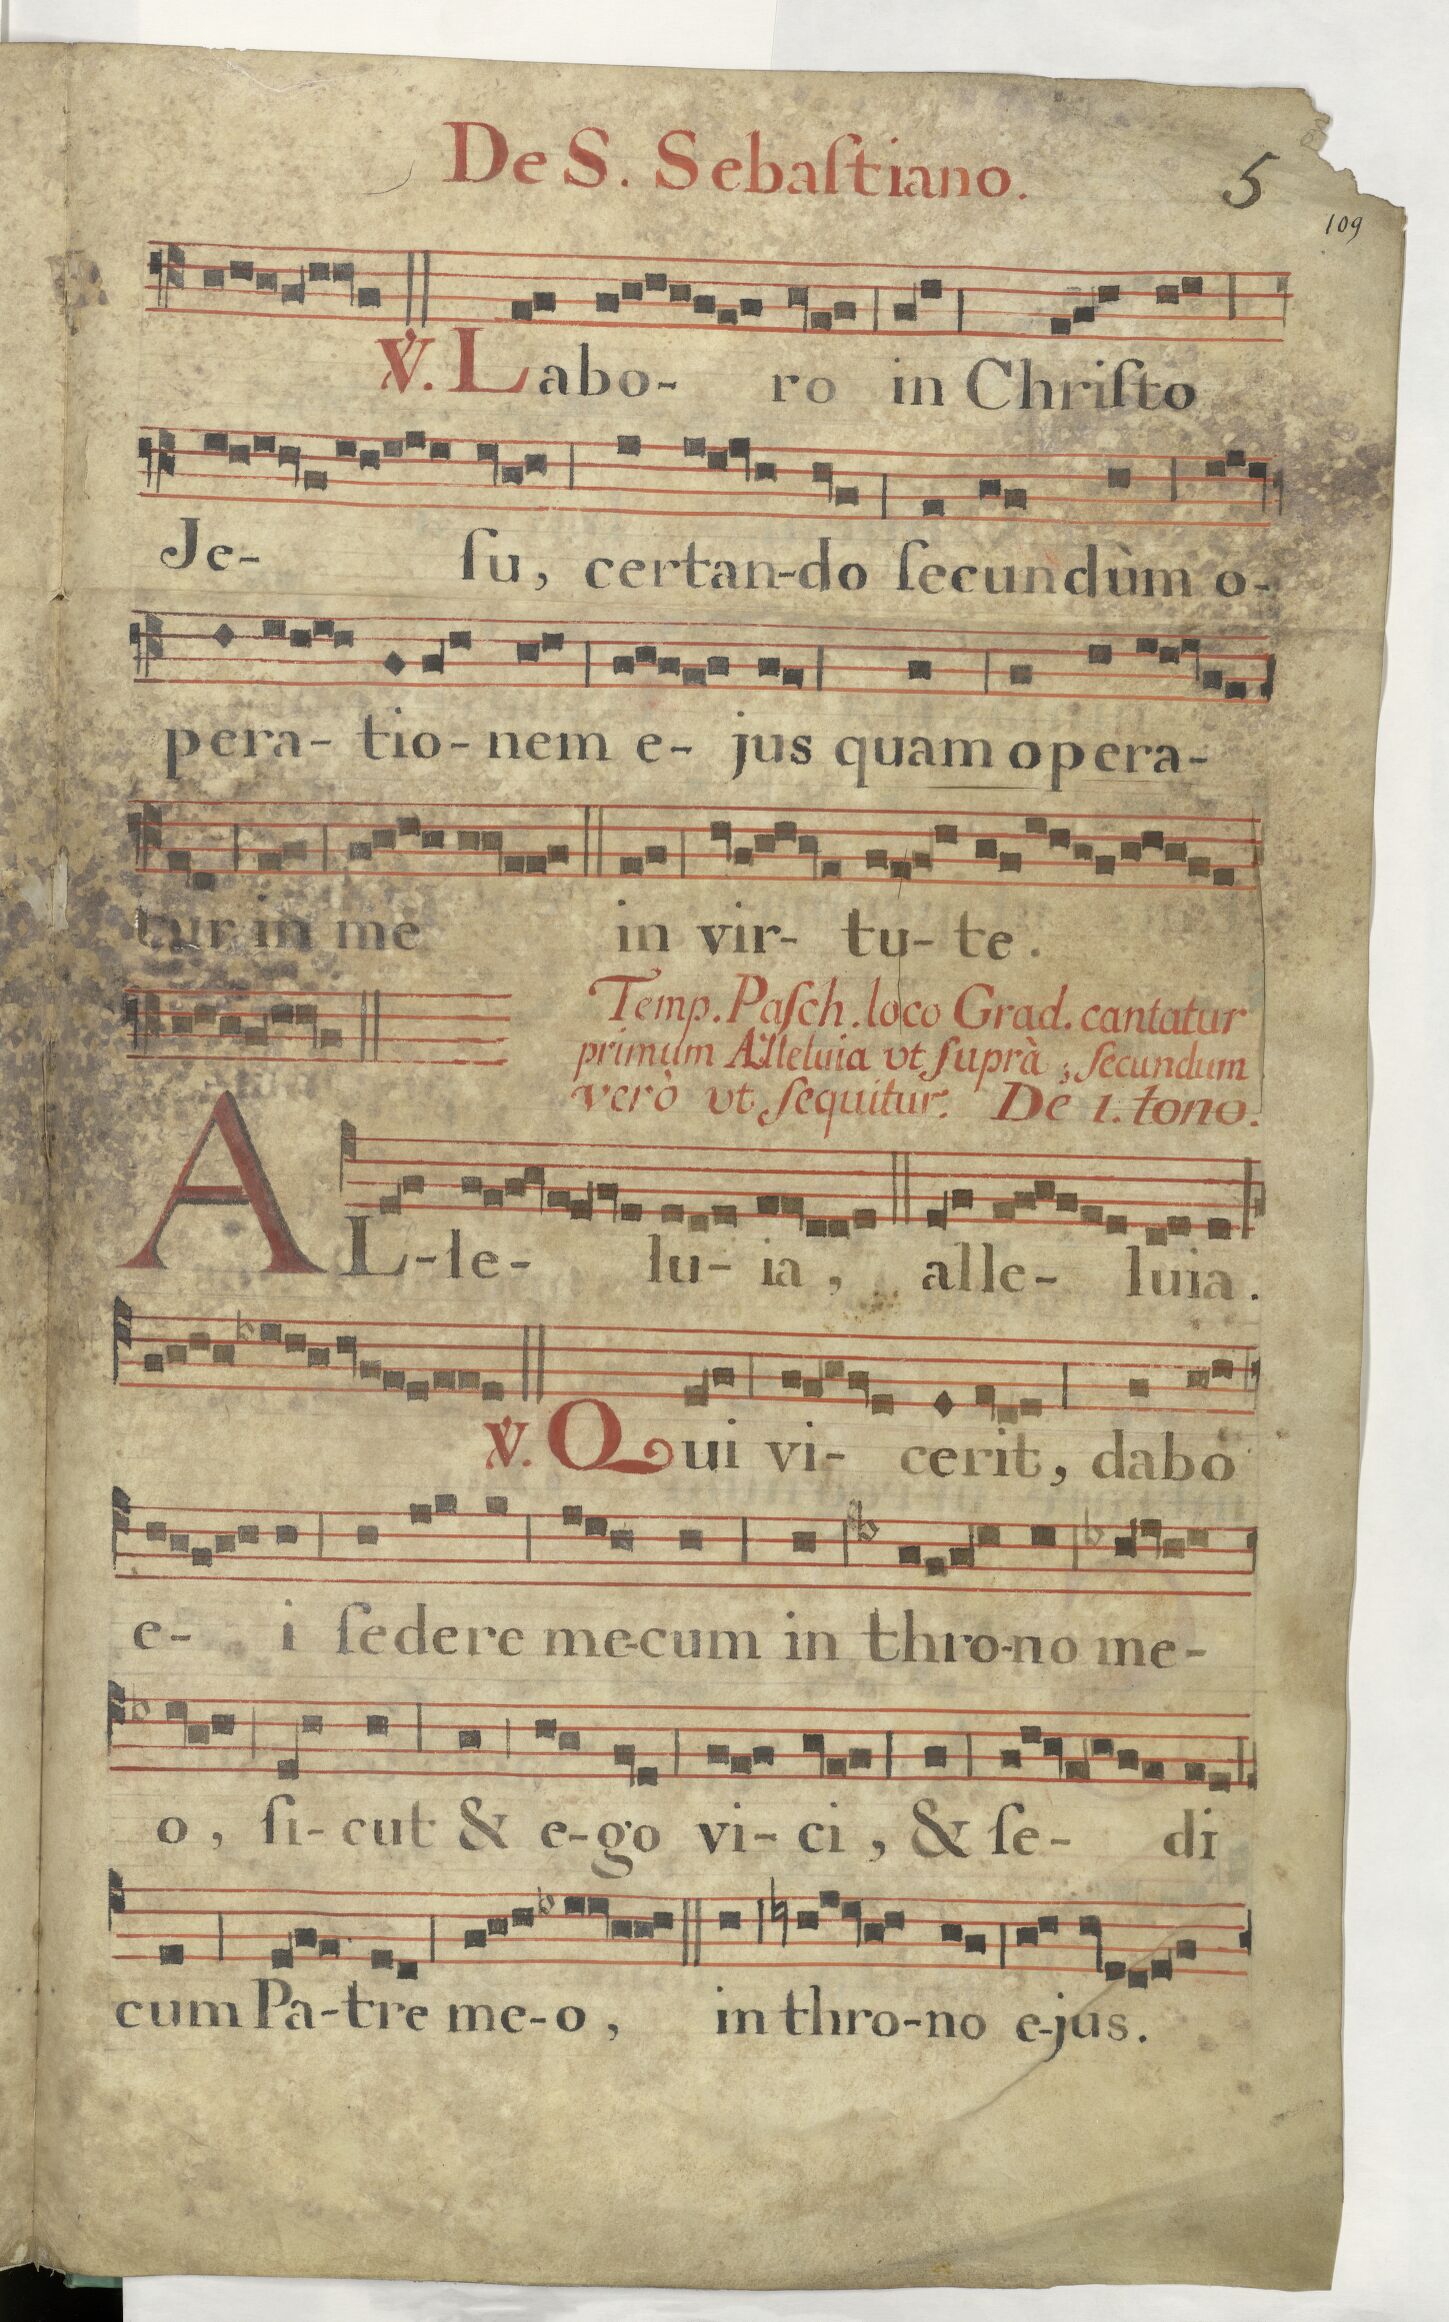 De S. Sebaſtiano. 5
109
℣. Labo- ro in Chriſto
Je- ſu, certan-do ſecundùm o-
pera- tio- nem e- jus quam opera-
tur in me in vir- tu- te.
Temp. Paſch. loco Grad. cantatur
primum Alleluia vt ſuprà; ſecundum
verò vt ſequitur. De 1. tono.
AL-le- lu- ia, alle- luia.
℣. Qui vi- cerit, dabo
e- i ſedere me-cum in thro-no me-
o, ſi- cut & e-go vi- ci, & ſe- di
cum Pa-tre me-o, in thro-no e-jus.